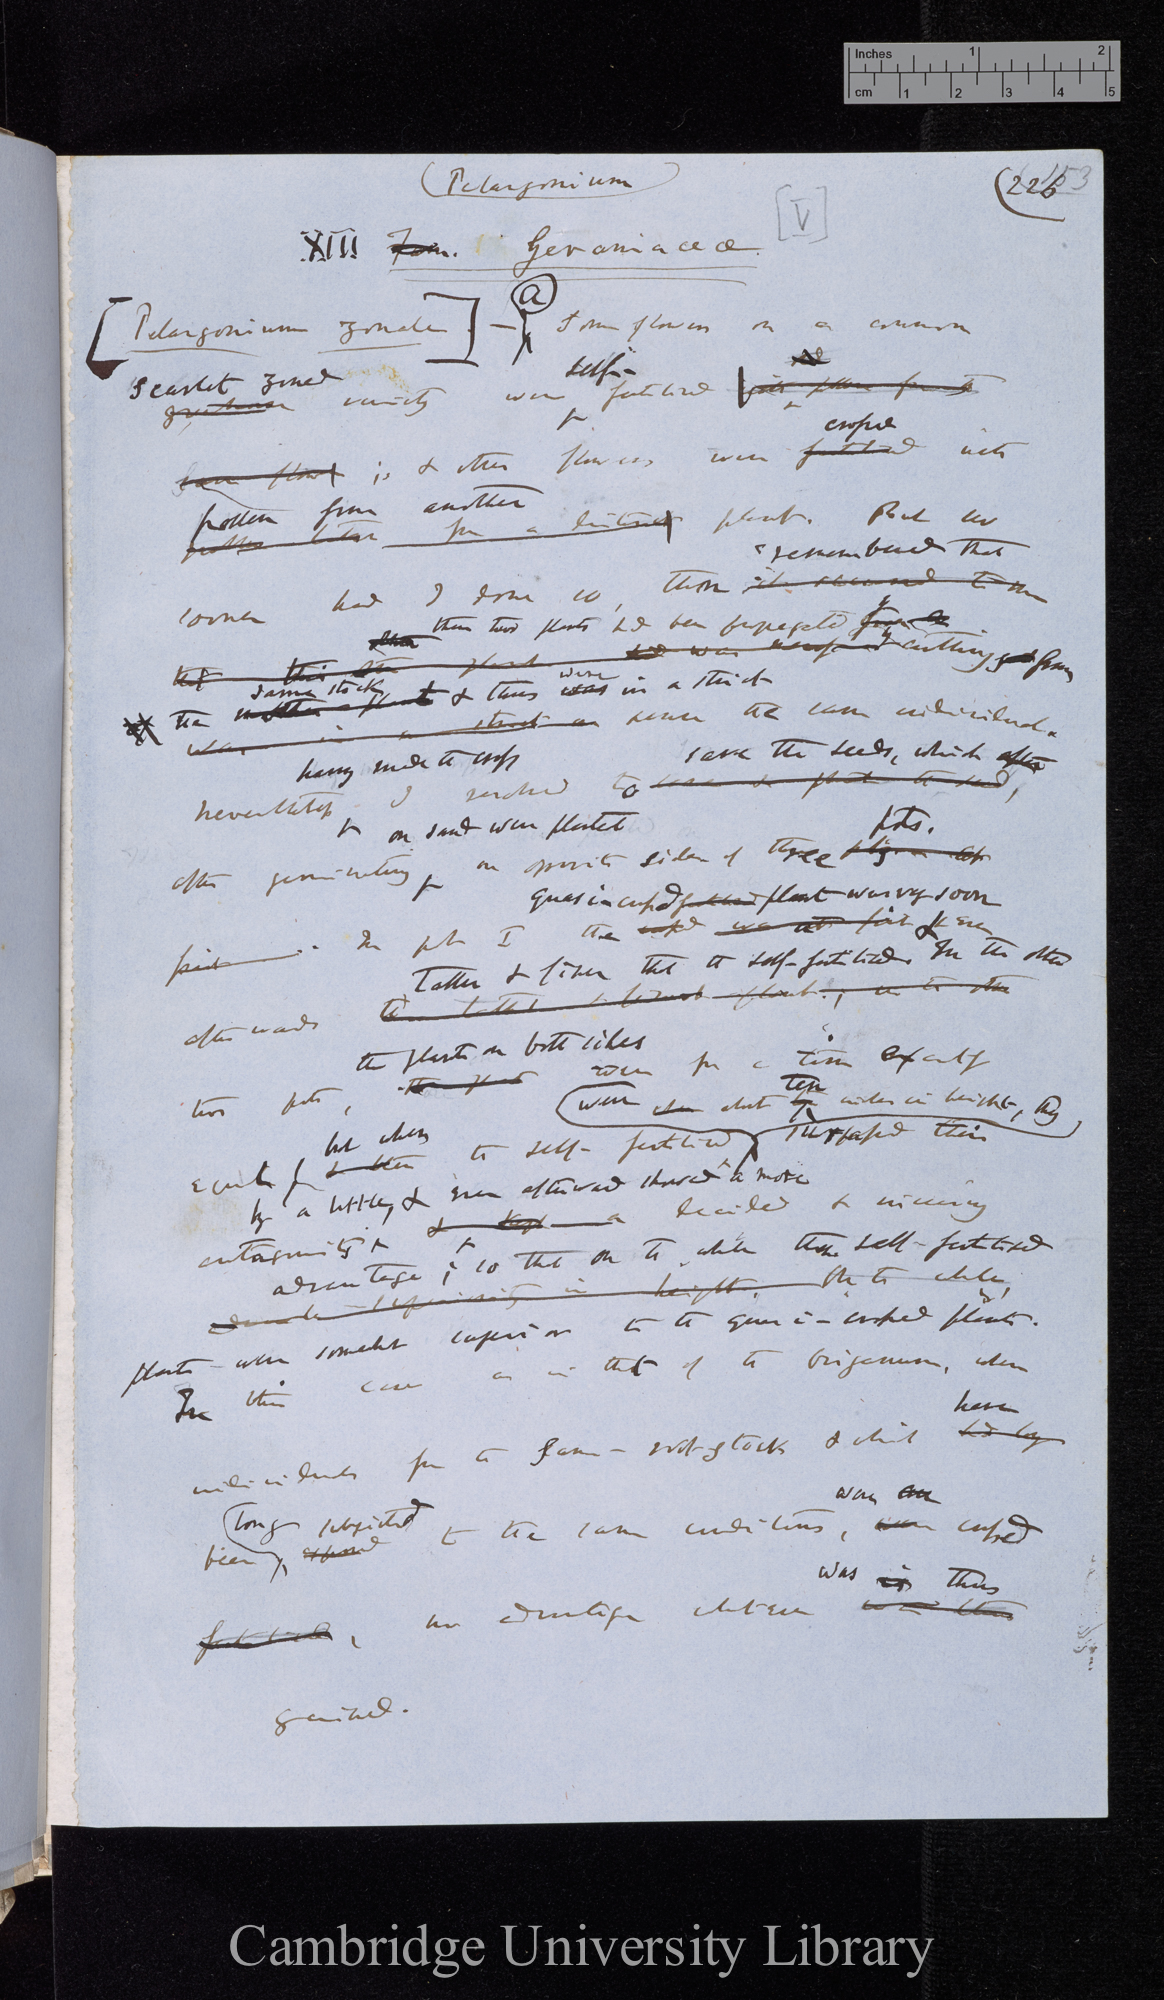 Inches 1 2
cm 1 2 3 4 5
(Pelargonium)
(226 153
[V]
XIII Fam. Geraniaceæ
[Pelargonium zonale] — (a) Some flowers on a common
Scarlet zoned self-
variety were fertilised
crossed
same flower ; & other flowers were fertilised with
pollen from another
from a distinct plant. But no
remembered that
sooner had I done so, than it seemed to me
these two plants had been propagated by cuttings from
that this plant had been
the same stock, & thus were in a strict
was in a strict sense the same individual.
having made the cross save the seeds, which after
Nevertheless I resolved to
on sand were planted pots.
after germinating on opposite sides of three
quasi-crossed plant was very soon
In pot I the
taller & finer than the self-fertilised. In the other
afterwards
the plants on both sides
two pots, were for a time exactly
were when about ten inches in height, they
but when surpassed their
equal; the self-fertilised
by a little, & ever afterwards showed a more
antagonist & kept a decided & increasing
advantage; so that on the whole the self-fertilised
superiority in height. On the whole,
plants were somewhat superior to the quasi-crossed plants.
In this case as in that of the Origanum, when
have
individuals from the same root-stock & which
long subjected were
been to the same conditions, were crossed
was is thus
fertilised, no advantage whatever was thus
gained.
Cambridge University Library